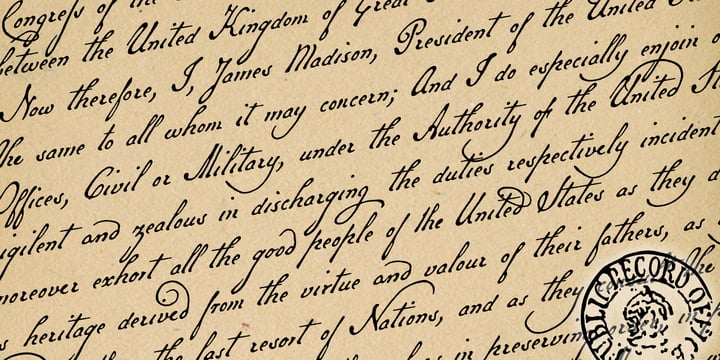 Congress of the
between the United Kingdom of Great
Now therefore, I, James Madison, President of the United
the same to all whom it may concern; And I do especially enjoin
Offices, Civil or Military, under the Authority of the United
vigilent and zealous in discharging the duties respectively incident
moreover exhort all the good people of the United States as they
heritage derived from the virtue and valour of their fathers, as
the last resort of Nations, and as they
in preserving
PUBLIC RECORD OFFICE